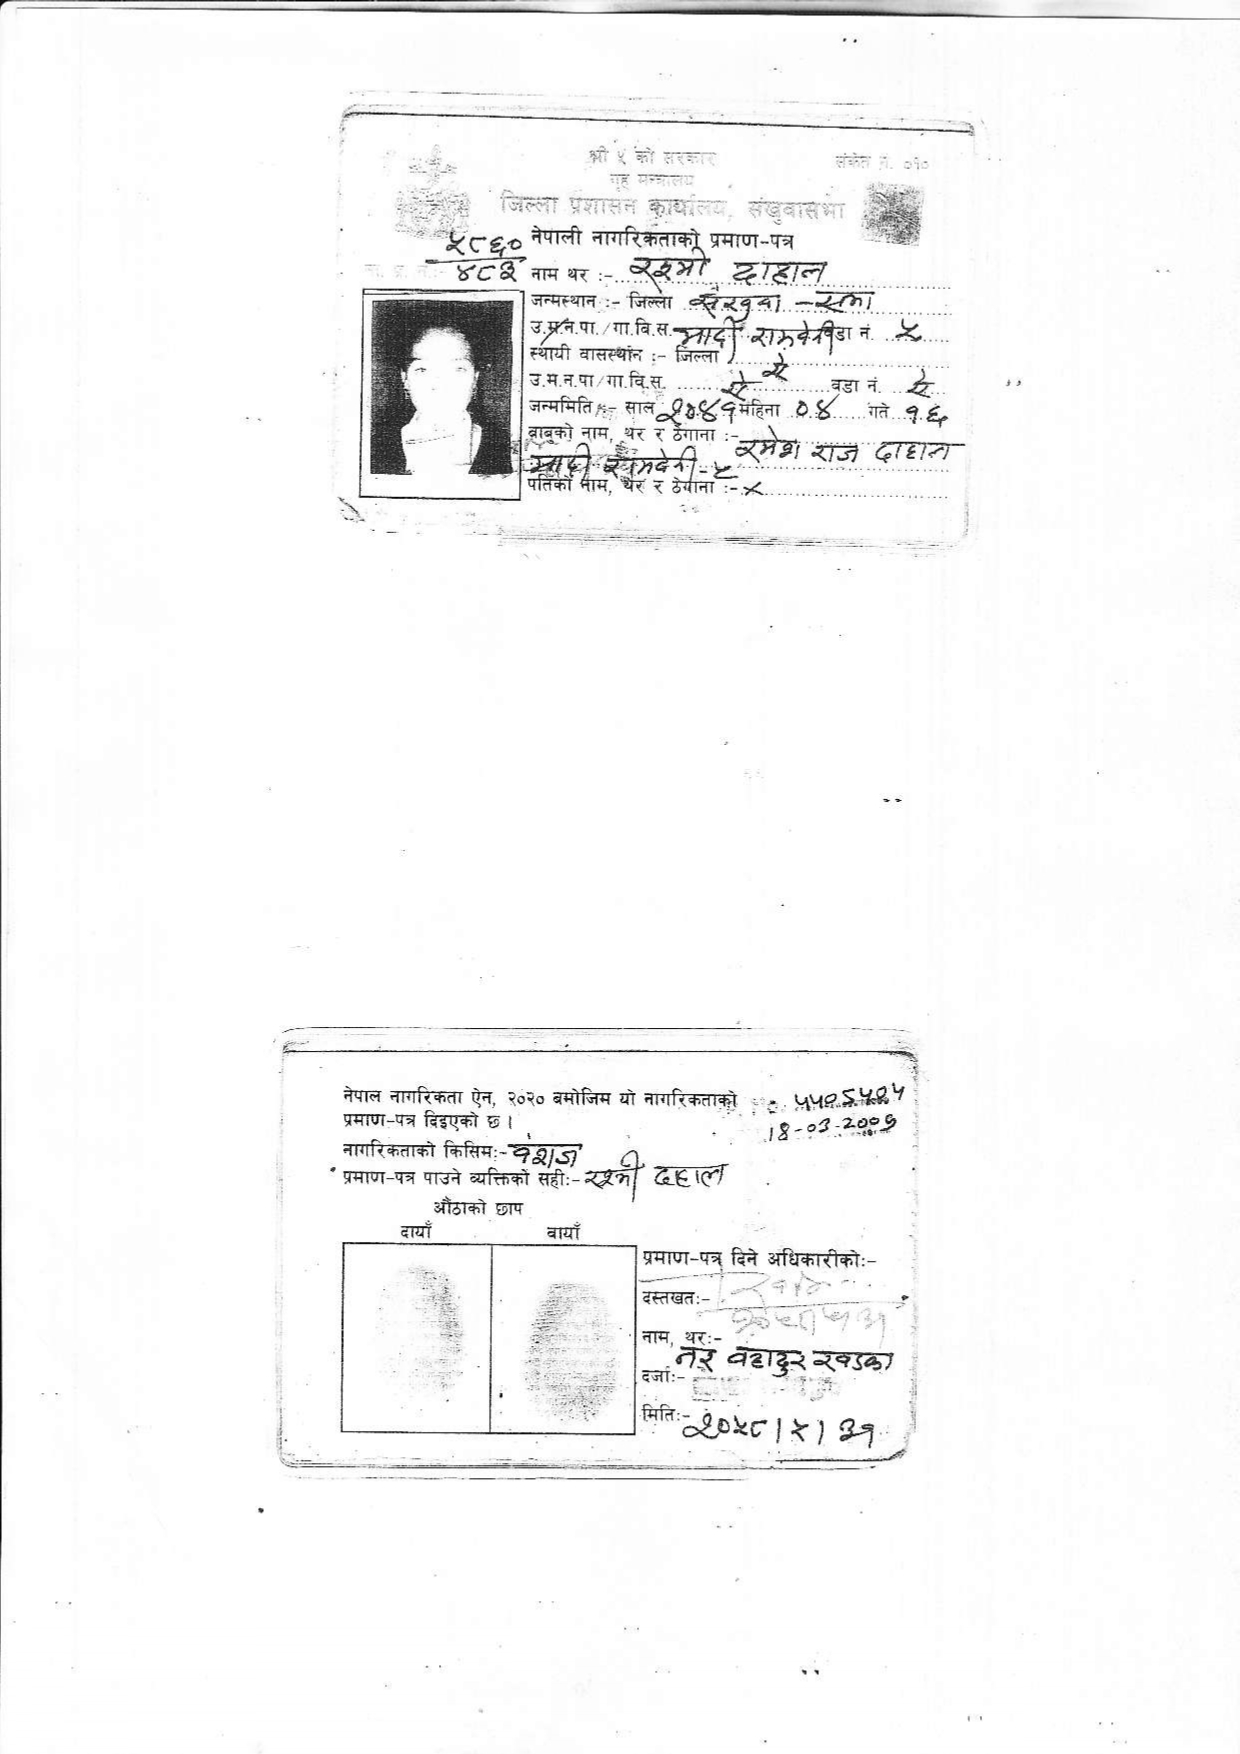 श्री ५ को सरकार
संकेत नं. ०१०
गृह मन्त्रालय
जिल्ला प्रशासन कार्यालय, संखुवासभा
नेपाली नागरिकताको प्रमाण-पत्र
५८६०
ना. प्र. नं.:- ४८३
नाम थर :- रश्मी दाहाल
जन्मस्थान :- जिल्ला संखुवा-सभा
उ.म.न.पा./गा.वि.स. मादी रामवेनी वडा नं. ५
स्थायी वासस्थान :- जिल्ला ऐ
उ.म.न.पा/गा.वि.स. ऐ वडा नं. ऐ
जन्ममिति :- साल २०४१ महिना ०४ गते १६
बाबुको नाम, थर र ठेगाना :- रमेश राज दाहाल
मादी रामवेनी-५
पतिको नाम, थर र ठेगाना :- ×
नेपाल नागरिकता ऐन, २०२० बमोजिम यो नागरिकताको
प्रमाण-पत्र दिइएको छ ।
18-03-2009
नागरिकताको किसिम:- वंशज
प्रमाण-पत्र पाउने व्यक्तिको सही:- रश्मी दाहाल
औंठाको छाप
दायाँ बायाँ
प्रमाण-पत्र दिने अधिकारीको:-
दस्तखत:-
नाम, थर:- नर बहादुर खड्का
दर्जा:-
मिति:- २०५८।५।३१